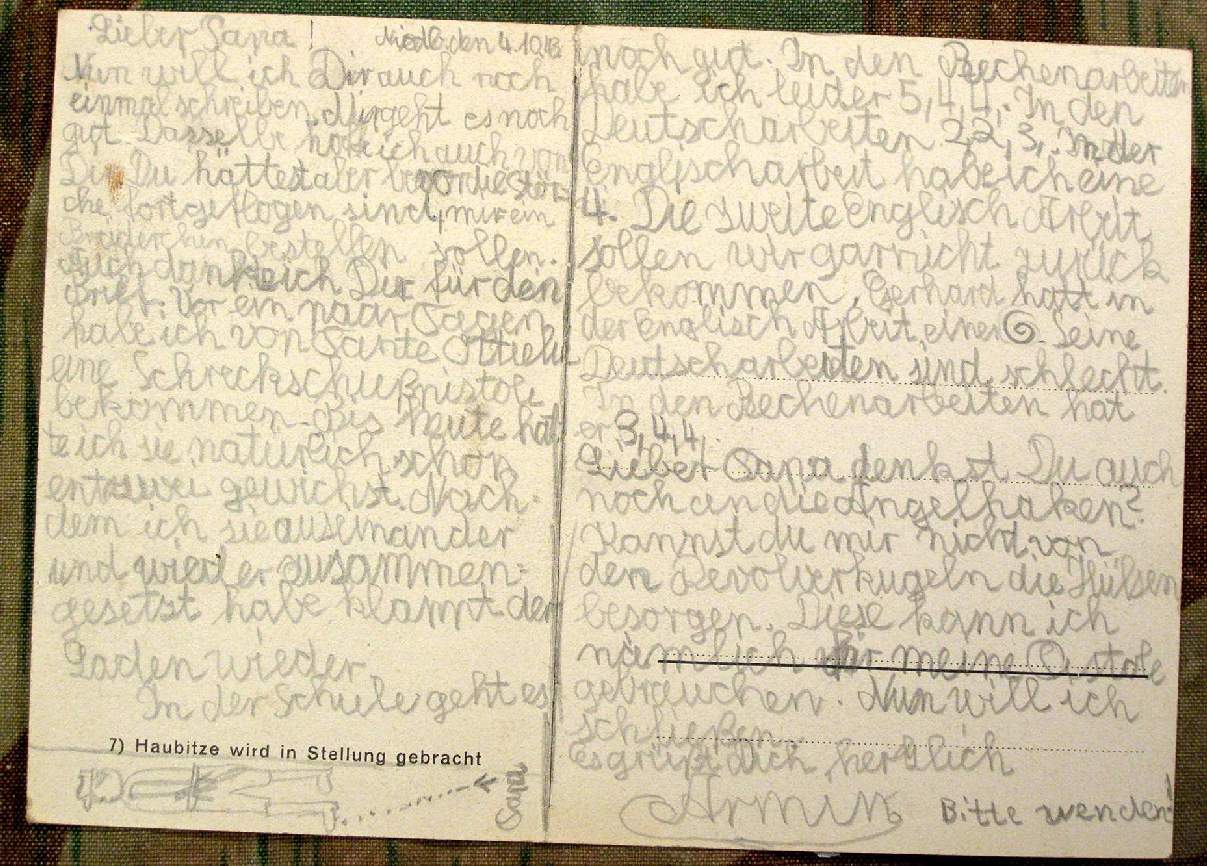 Lieber Papa!
den 4.10.43
Nun will ich Dir auch noch
einmal schreiben. Mir geht es noch
gut. Dasselbe hoffe ich auch von
Dir. Du hättest aber bevor die Stör-
che fortgeflogen sind, mir ein
Brüderchen bestellen sollen.
Auch danke ich Dir für den
Brief. Vor ein paar Tagen
habe ich von Tante Ottielie
eine Schreckschußpistole
bekommen. Bis heute hat-
te ich sie natürlich schon
entzwei gewichst. Nach-
dem ich sie auseinander
und wieder zusammen-
gesetzt habe klappt der
Laden wieder.
In der Schule geht es
7) Haubitze wird in Stellung gebracht
Papa
noch gut. In den Rechenarbeiten
habe ich leider 5,4,4,. In den
Deutscharbeiten 2,2,3,. In der
Englischarbeit habe ich eine
4. Die zweite Englisch Arbeit
sollen wir garnicht zurück
bekommen. Gerhard hatt in
der Englisch Arbeit einen 6. Seine
Deutscharbeiten sind schlecht.
In den Rechenarbeiten hat
er 3,4,4,.
Lieber Papa denkst Du auch
noch an die Angelhaken?
Kannst du mir nicht von
den Revolverkugeln die Hülsen
besorgen. Diese kann ich
nämlich für meine Pistole
gebrauchen. Nun will ich
schließen.
Es grüßt Dich herzlich
Armin
Bitte wenden!